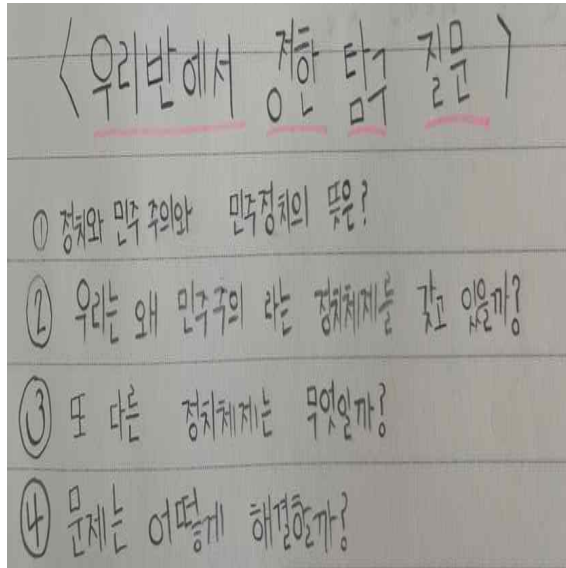 <우리반에서 정한 탐구 질문>
① 정치와 민주 주의와 민주정치의 뜻은?
② 우리는 왜 민주주의 라는 정치체제를 갖고 있을까?
③ 또 다른 정치체제는 무엇일까?
④ 문제는 어떻게 해결할까?